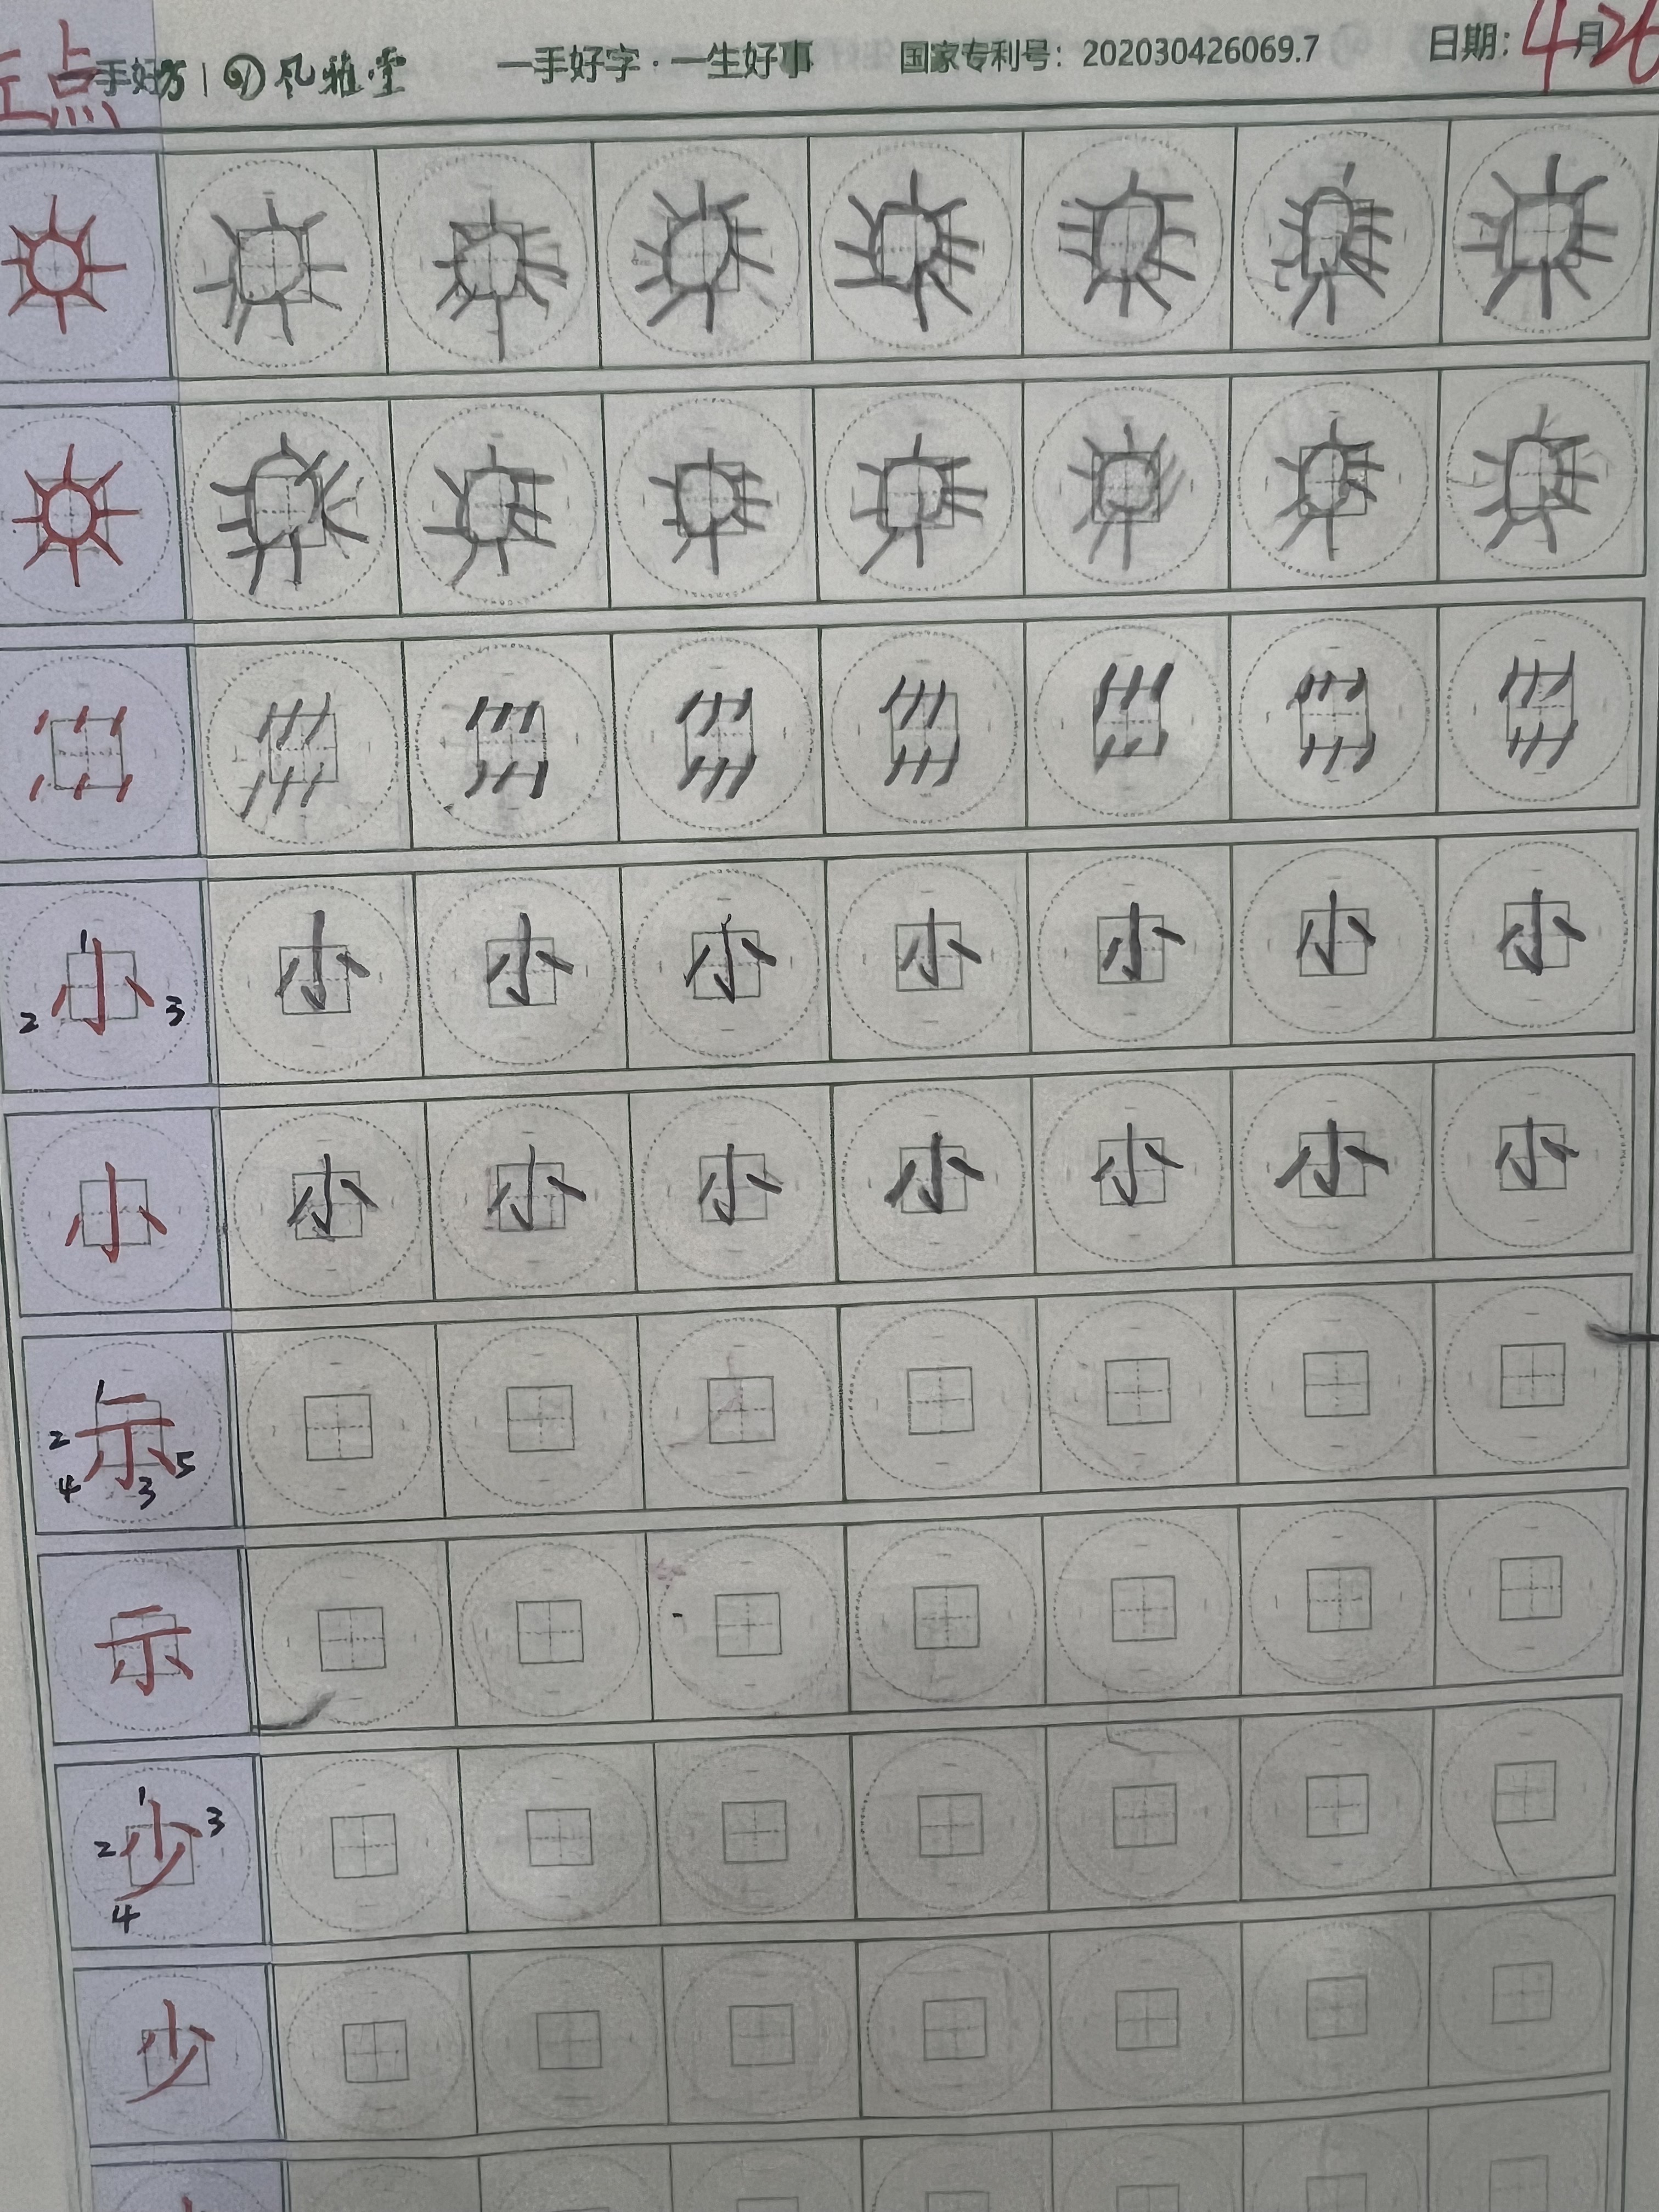 左点 一手好字 | 风雅堂 一手好字·一生好事 国家专利号：202030426069.7 日期：4月26
1 小 2 3 小 小 小 小 小 小 小
小 小 小 小 小 小 小 小
1 示 2 4 3 5
示
1 少 2 3 4
少